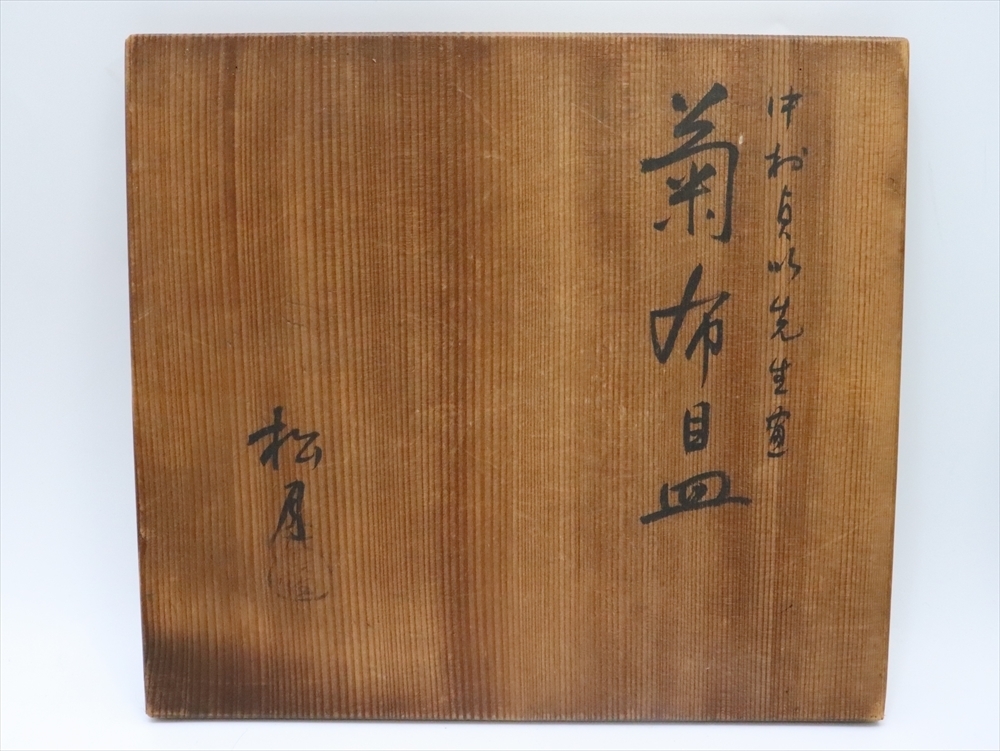 中村貞以先生画
菊布目皿
松月